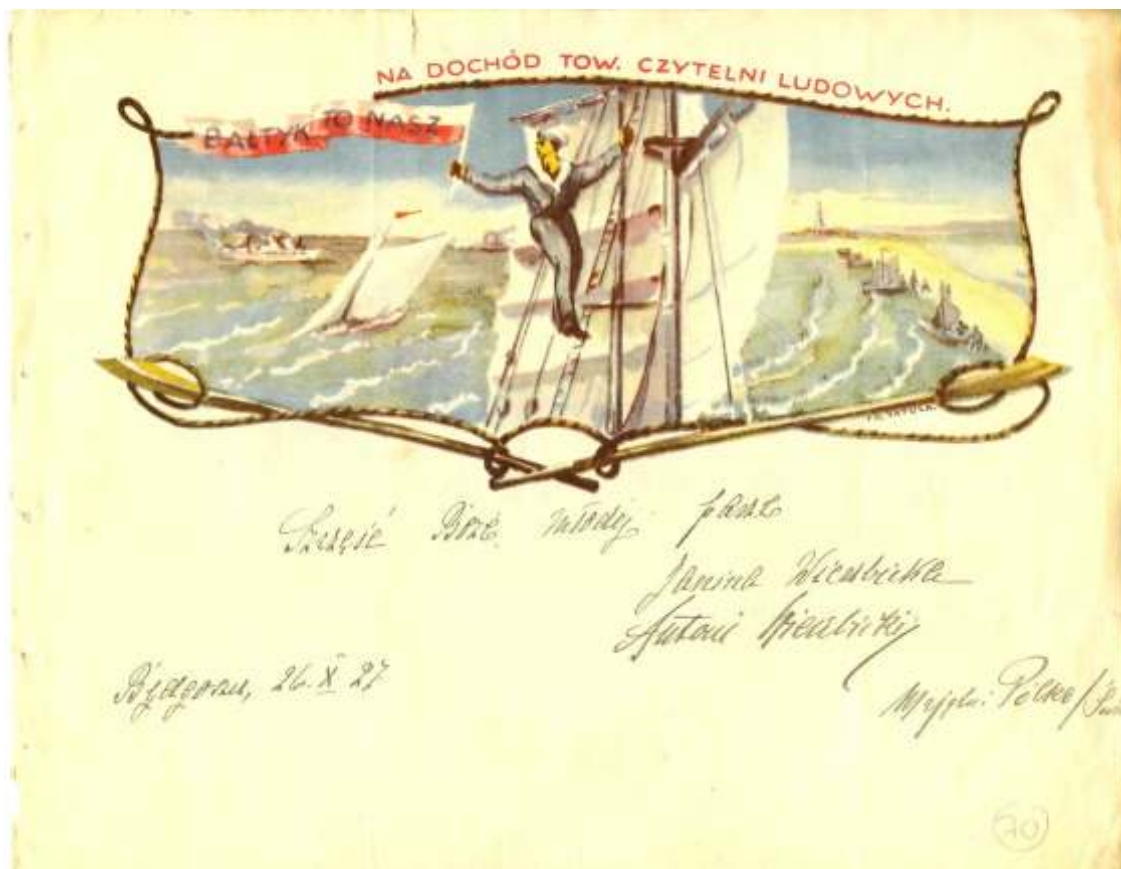 NA DOCHÓD TOW. CZYTELNI LUDOWYCH.
BAŁTYK TO NASZ
Szczęść Boże młodej parze
Janina Wierzbicka
Antoni Wierzbicki
Bydgoszcz, 26. X 27
Polsce
70